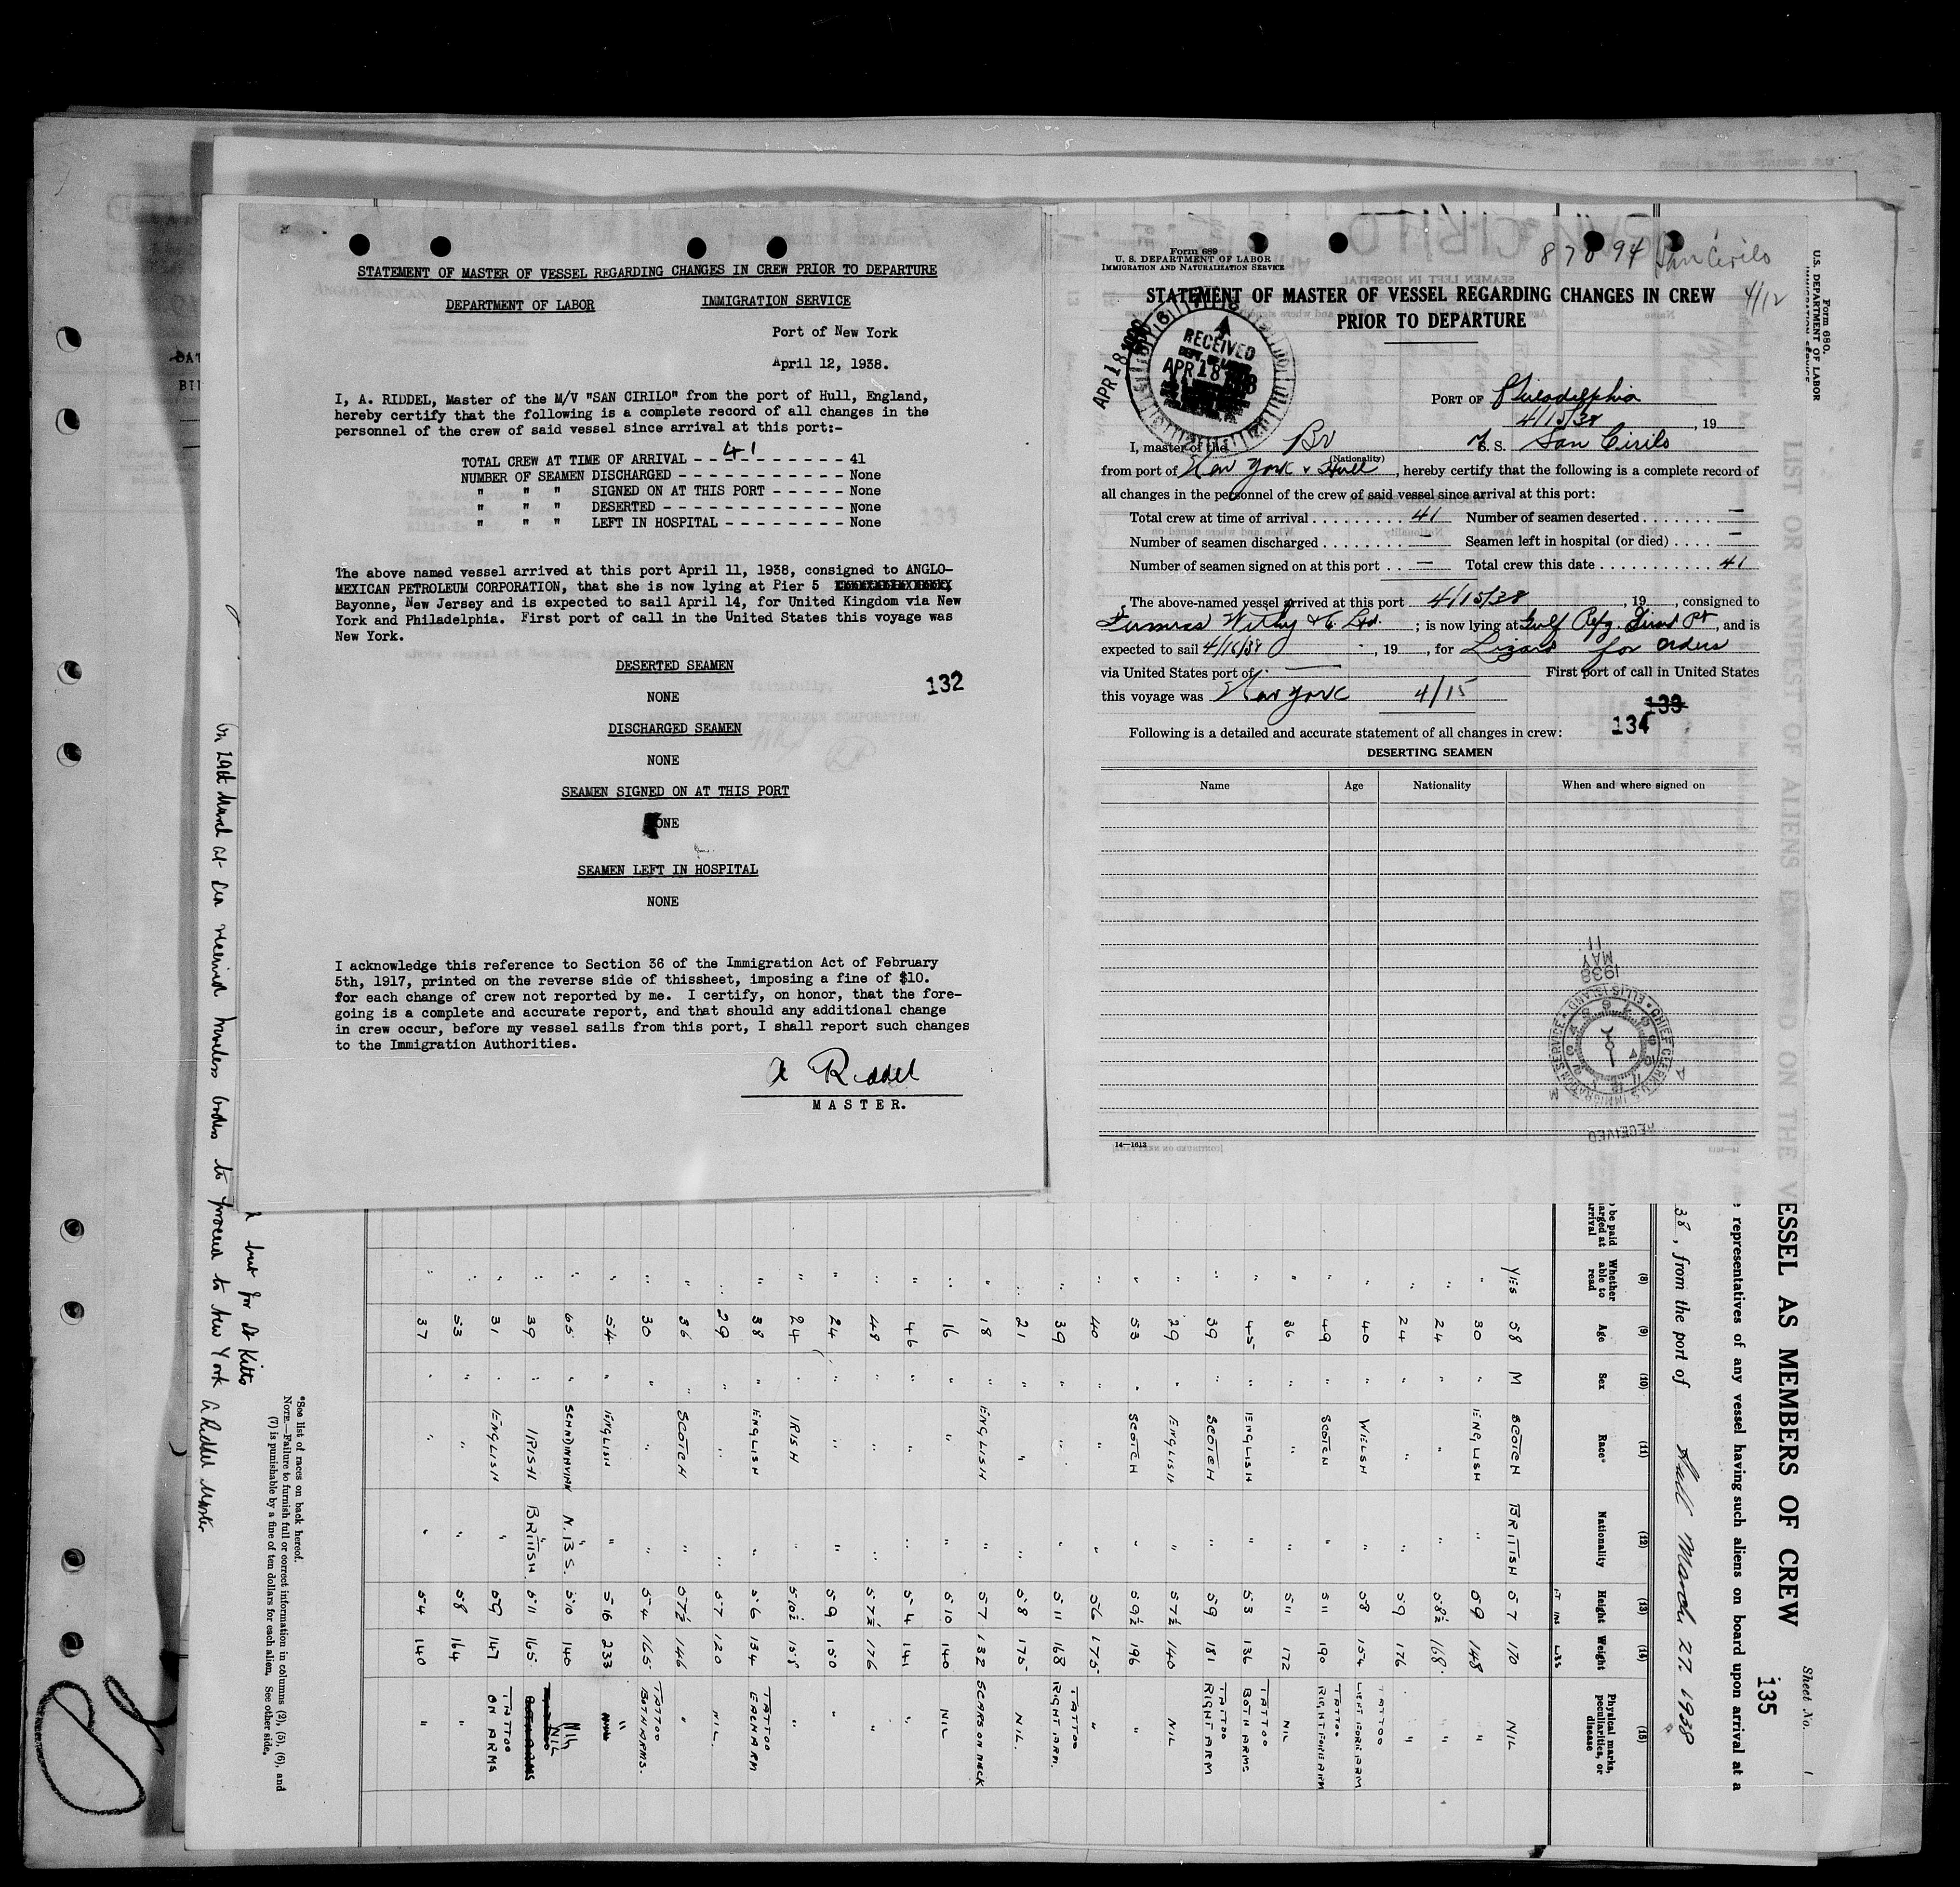 STATEMENT OF MASTER OF VESSEL REGARDING CHANGES IN CREW PRIOR TO DEPARTURE
DEPARTMENT OF LABOR IMMIGRATION SERVICE
Port of New York
April 12, 1938.
I, A. RIDDEL, Master of the M/V "SAN CIRILO" from the port of Hull, England,
hereby certify that the following is a complete record of all changes in the
personnel of the crew of said vessel since arrival at this port:-
41
TOTAL CREW AT TIME OF ARRIVAL - - - - - - - - - - 41
NUMBER OF SEAMEN DISCHARGED - - - - - - - - - - - None
" " " SIGNED ON AT THIS PORT - - - - - None
" " " DESERTED - - - - - - - - - - - - None
" " " LEFT IN HOSPITAL - - - - - - - - None
The above named vessel arrived at this port April 11, 1938, consigned to ANGLO-
MEXICAN PETROLEUM CORPORATION, that she is now lying at Pier 5
Bayonne, New Jersey and is expected to sail April 14, for United Kingdom via New
York and Philadelphia. First port of call in the United States this voyage was
New York.
DESERTED SEAMEN
NONE
132
DISCHARGED SEAMEN
NONE
SEAMEN SIGNED ON AT THIS PORT
NONE
SEAMEN LEFT IN HOSPITAL
NONE
I acknowledge this reference to Section 36 of the Immigration Act of February
5th, 1917, printed on the reverse side of thissheet, imposing a fine of $10.
for each change of crew not reported by me. I certify, on honor, that the fore-
going is a complete and accurate report, and that should any additional change
in crew occur, before my vessel sails from this port, I shall report such changes
to the Immigration Authorities.
A Riddel
MASTER.
Form 689
U. S. DEPARTMENT OF LABOR
IMMIGRATION AND NATURALIZATION SERVICE
87894 San Cirilo
4/12
STATEMENT OF MASTER OF VESSEL REGARDING CHANGES IN CREW
PRIOR TO DEPARTURE
RECEIVED
APR 18 1938
PORT OF Philadelphia
4/15/38, 19
I, master of the Br S. S. San Cirilo
(Nationality)
from port of New York & Hull, hereby certify that the following is a complete record of
all changes in the personnel of the crew of said vessel since arrival at this port:
Total crew at time of arrival . . . . . . . . . 41 Number of seamen deserted . . . . . . . —
Number of seamen discharged . . . . . . . . — Seamen left in hospital (or died) . . . . —
Number of seamen signed on at this port . . — Total crew this date . . . . . . . . . . . 41
The above-named vessel arrived at this port 4/15/38, 19, consigned to
Furness Withy & Co Ltd. ; is now lying at Gulf Refg. Pt, and is
expected to sail 4/16/38, 19, for Lizard for orders
via United States port of — First port of call in United States
this voyage was New York 4/15
133
134
Following is a detailed and accurate statement of all changes in crew:
DESERTING SEAMEN
Name Age Nationality When and where signed on
CHIEF CLERK U.S. IMMIGRATION SERVICE · ELLIS ISLAND
1938 MAY 11
RECEIVED
14—1613
Form 680.
U. S. DEPARTMENT OF LABOR
LIST OR MANIFEST OF ALIENS EMPLOYED ON THE VESSEL AS MEMBERS OF CREW
Sheet No. 1
135
representatives of any vessel having such aliens on board upon arrival at a
38, from the port of Hull March 27. 1938
be paid
arged at
arrival
(8) Whether able to read
(9) Age
(10) Sex
(11) Race*
(12) Nationality
(13) Height
(14) Weight
(15) Physical marks, peculiarities, or disease
FT INS LBS
YES 58 M SCOTCH BRITISH 5 7 170 NIL
" 30 " ENGLISH " 5 9 148 "
" 24 " " " 5 8½ 168 "
" 24 " " " 5 9 176 "
" 40 " WELSH " 5 8 154 TATTOO LEFT FOREARM
" 49 " SCOTCH " 5 11 190 TATTOO RIGHT FOREARM
" 36 " " " 5 11 172 NIL
" 45 " ENGLISH " 5 3 136 TATTOO BOTH ARMS
" 39 " SCOTCH " 5 9 181 TATTOO RIGHT ARM
" 29 " ENGLISH " 5 7½ 140 NIL
" 53 " SCOTCH " 5 9½ 196 "
" 40 " " " 5 6 175 "
" 39 " " " 5 11 168 TATTOO RIGHT ARM.
" 21 " " " 5 8 175 NIL.
" 18 " ENGLISH " 5 7 132 SCAR ON NECK
" 16 " " " 5 10 140 NIL
" 46 " " " 5 4 141
" 48 " " " 5 7½ 176 "
" 24 " " " 5 9 150 "
" 24 " IRISH " 5 10½ 158 "
" 38 " ENGLISH " 5 6 134 TATTOO EACH ARM
" 29 " " " 5 7 120 NIL.
" 36 " SCOTCH " 5 7½ 146 "
" 30 " " " 5 4 165 TATTOO BOTH ARMS.
" 54 " ENGLISH " 233 "
" 65 " SCANDINAVIAN N. B S. 5 10 140 Nil
" 39 " IRISH BRITISH. 5 11 165 NIL
" 31 " ENGLISH " 5 9 147 TATTOO ON ARMS
" 53 " " " 5 8 164 "
" 37 " " " 5 4 140 "
*See list of races on back hereof.
NOTE.—Failure to furnish full or correct information in columns (2), (5), (6), and
(7) is punishable by a fine of ten dollars for each alien. See other side.
but for St Kitts
On 29th March at sea received wireless orders to proceed to New York A Riddel Master